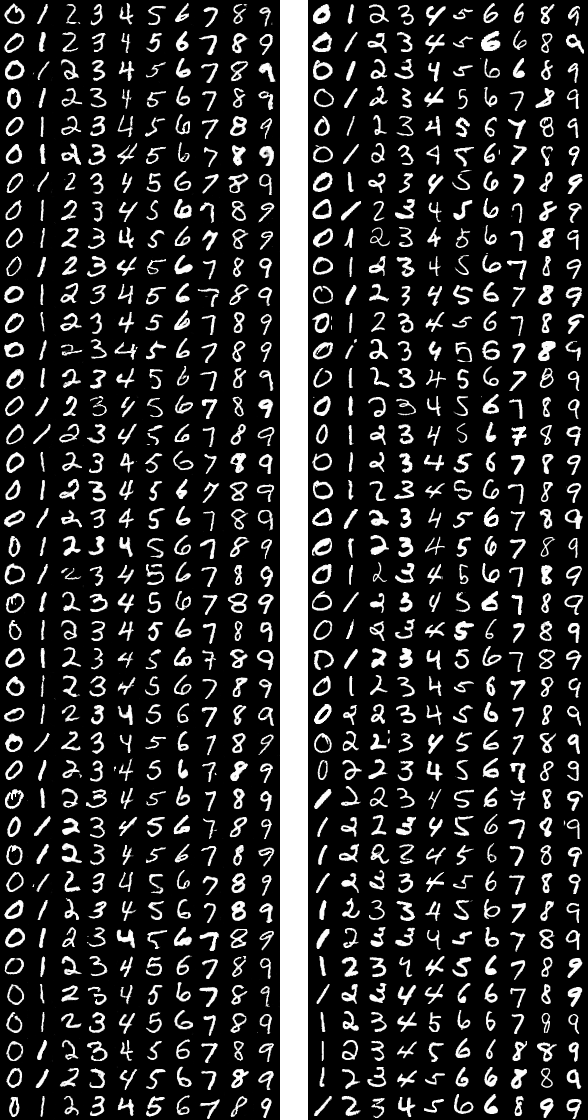 0 1 2 3 4 5 6 7 8 9
0 1 2 3 4 5 6 7 8 9
0 1 2 3 4 5 6 7 8 9
0 1 2 3 4 5 6 7 8 9
0 1 2 3 4 5 6 7 8 9
0 1 2 3 4 5 6 7 8 9
0 1 2 3 4 5 6 7 8 9
0 1 2 3 4 5 6 7 8 9
0 1 2 3 4 5 6 7 8 9
0 1 2 3 4 5 6 7 8 9
0 1 2 3 4 5 6 7 8 9
0 1 2 3 4 5 6 7 8 9
0 1 2 3 4 5 6 7 8 9
0 1 2 3 4 5 6 7 8 9
0 1 2 3 4 5 6 7 8 9
0 1 2 3 4 5 6 7 8 9
0 1 2 3 4 5 6 7 8 9
0 1 2 3 4 5 6 7 8 9
0 1 2 3 4 5 6 7 8 9
0 1 2 3 4 5 6 7 8 9
0 1 2 3 4 5 6 7 8 9
0 1 2 3 4 5 6 7 8 9
0 1 2 3 4 5 6 7 8 9
0 1 2 3 4 5 6 7 8 9
0 1 2 3 4 5 6 7 8 9
0 1 2 3 4 5 6 7 8 9
0 1 2 3 4 5 6 7 8 9
0 1 2 3 4 5 6 7 8 9
0 1 2 3 4 5 6 7 8 9
0 1 2 3 4 5 6 7 8 9
0 1 2 3 4 5 6 7 8 9
0 1 2 3 4 5 6 7 8 9
0 1 2 3 4 5 6 7 8 9
0 1 2 3 4 5 6 7 8 9
0 1 2 3 4 5 6 7 8 9
0 1 2 3 4 5 6 7 8 9
0 1 2 3 4 5 6 7 8 9
0 1 2 3 4 5 6 7 8 9
0 1 2 3 4 5 6 7 8 9
0 1 2 3 4 5 6 7 8 9
0 1 2 3 4 5 6 6 8 9
0 1 2 3 4 5 6 6 8 9
0 1 2 3 4 5 6 6 8 9
0 1 2 3 4 5 6 7 8 9
0 1 2 3 4 5 6 7 8 9
0 1 2 3 4 5 6 7 8 9
0 1 2 3 4 5 6 7 8 9
0 1 2 3 4 5 6 7 8 9
0 1 2 3 4 5 6 7 8 9
0 1 2 3 4 5 6 7 8 9
0 1 2 3 4 5 6 7 8 9
0 1 2 3 4 5 6 7 8 9
0 1 2 3 4 5 6 7 8 9
0 1 2 3 4 5 6 7 8 9
0 1 2 3 4 5 6 7 8 9
0 1 2 3 4 5 6 7 8 9
0 1 2 3 4 5 6 7 8 9
0 1 2 3 4 5 6 7 8 9
0 1 2 3 4 5 6 7 8 9
0 1 2 3 4 5 6 7 8 9
0 1 2 3 4 5 6 7 8 9
0 1 2 3 4 5 6 7 8 9
0 1 2 3 4 5 6 7 8 9
0 1 2 3 4 5 6 7 8 9
0 1 2 3 4 5 6 7 8 9
0 2 2 3 4 5 6 7 8 9
0 2 2 3 4 5 6 7 8 9
0 2 2 3 4 5 6 7 8 9
1 2 2 3 4 5 6 7 8 9
1 2 2 3 4 5 6 7 8 9
1 2 2 3 4 5 6 7 8 9
1 2 2 3 4 5 6 7 8 9
1 2 3 3 4 5 6 7 8 9
1 2 3 3 4 5 6 7 8 9
1 2 3 4 4 5 6 7 8 9
1 2 3 4 4 6 6 7 8 9
1 2 3 4 5 6 6 7 8 9
1 2 3 4 5 6 6 8 8 9
1 2 3 4 5 6 6 8 8 9
1 2 3 4 5 6 6 8 9 9